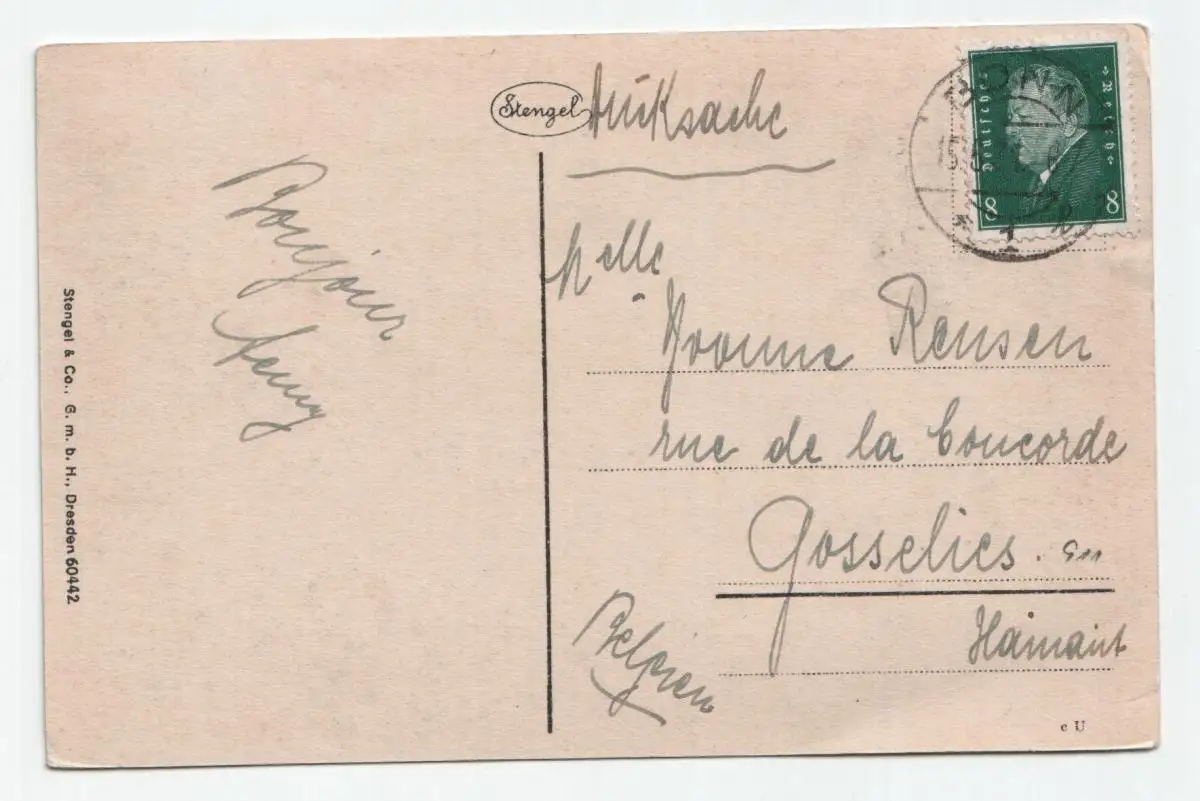 Stengel
Drucksache
BONN
Deutsches Reich
8 8
Bonjour
Melle
Yvonne Rensen
rue de la Concorde
Gosselies. en
Hainaut
Belgien
Stengel & Co., G. m. b. H., Dresden 60442
c U